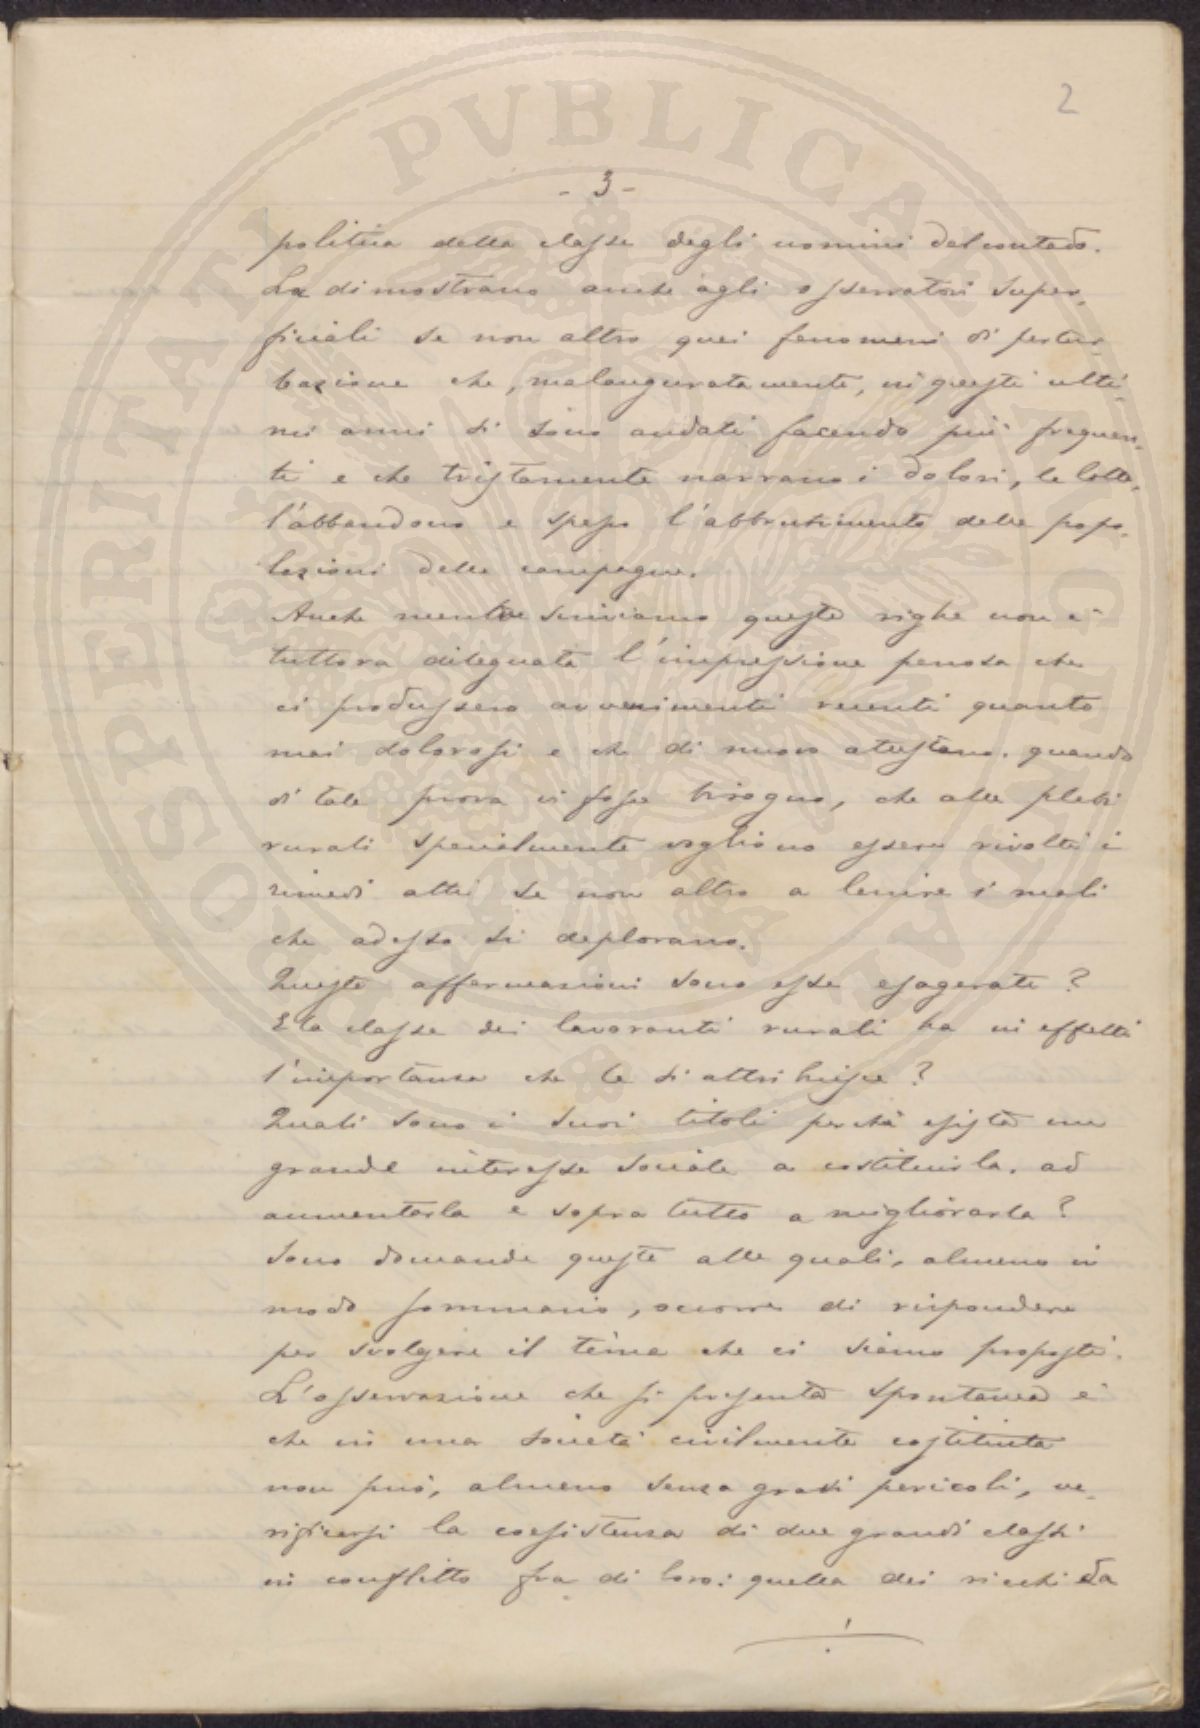 2
- 3 -
politica della classe degli uomini del contado.
La dimostrano anche agli osservatori super-
ficiali se non altro quei fenomeni di pertur-
bazione che, malauguratamente, in questi ulti-
mi anni si sono andati facendo più frequen-
ti e che tristamente narrano i dolori, le lotte,
l'abbandono e spesso l'abbrutimento delle popo-
lazioni delle campagne.
Anche mentre scriviamo queste righe non è
tuttora dileguata l'impressione penosa che
ci produssero avvenimenti recenti quanto
mai dolorosi e che di nuovo attestano, quando
di tale prova ci fosse bisogno, che alle plebi
rurali specialmente vogliono essere rivolti i
rimedi atti se non altro a lenire i mali
che adesso si deplorano.
Queste affermazioni sono esse esagerate?
E la classe dei lavoranti rurali ha in effetti
l'importanza che le si attribuisce?
Quali sono i suoi titoli perchè esista un
grande interesse sociale a costituirla, ad
aumentarla e sopra tutto a migliorarla?
Sono domande queste alle quali, almeno in
modo sommario, occorre di rispondere
per svolgere il tema che ci siamo proposti.
L'osservazione che si presenta spontanea è
che in una società civilmente costituita
non può, almeno senza gravi pericoli, ve-
rificarsi la coesistenza di due grandi classi
in conflitto fra di loro: quella dei ricchi da
PROSPERITATI PVBLICAE